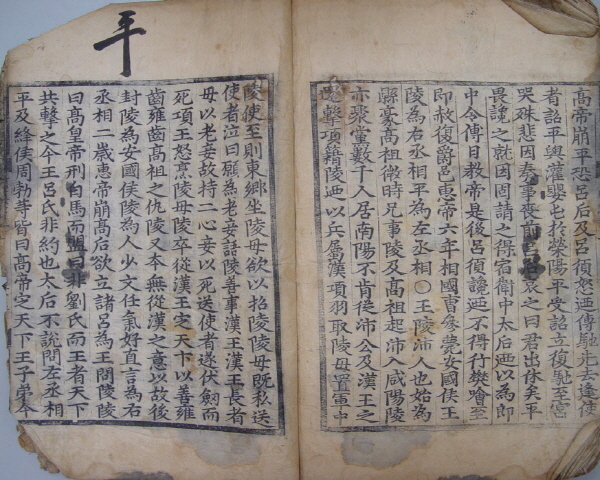 高帝崩平恐呂后及呂須怒廼傳馳先去逢使
者詔平與灌嬰屯於滎陽平受詔立復馳至宮
哭殊悲因奏事喪前呂后哀之曰君出休矣平
畏讒之就因固請之得宿衛中太后廼以為郎
中令傅日教帝是後呂須讒廼不得行樊噲至
即赦復爵邑惠帝六年相國曹參薨安國侯王
陵為右丞相平為左丞相○王陵沛人也始為
縣豪高祖微時兄事陵及高祖起沛入咸陽陵
亦聚黨數千人居南陽不肯從沛公及漢王之
還擊項籍陵廼以兵屬漢項羽取陵母置軍中
平
陵使至則東鄉坐陵母欲以招陵陵母既私送
使者泣曰願為老妾語陵善事漢王漢王長者
母以老妾故持二心妾以死送使者遂伏劍而
死項王怒烹陵母陵卒從漢王定天下以善雍
齒雍齒高祖之仇陵又本無從漢之意以故後
封陵為安國侯陵為人少文任氣好直言為右
丞相二歲惠帝崩高后欲立諸呂為王問陵陵
曰高皇帝刑白馬而盟曰非劉氏而王者天下
共擊之今王呂氏非約也太后不說問左丞相
平及絳侯周勃等皆曰高帝定天下王子弟今